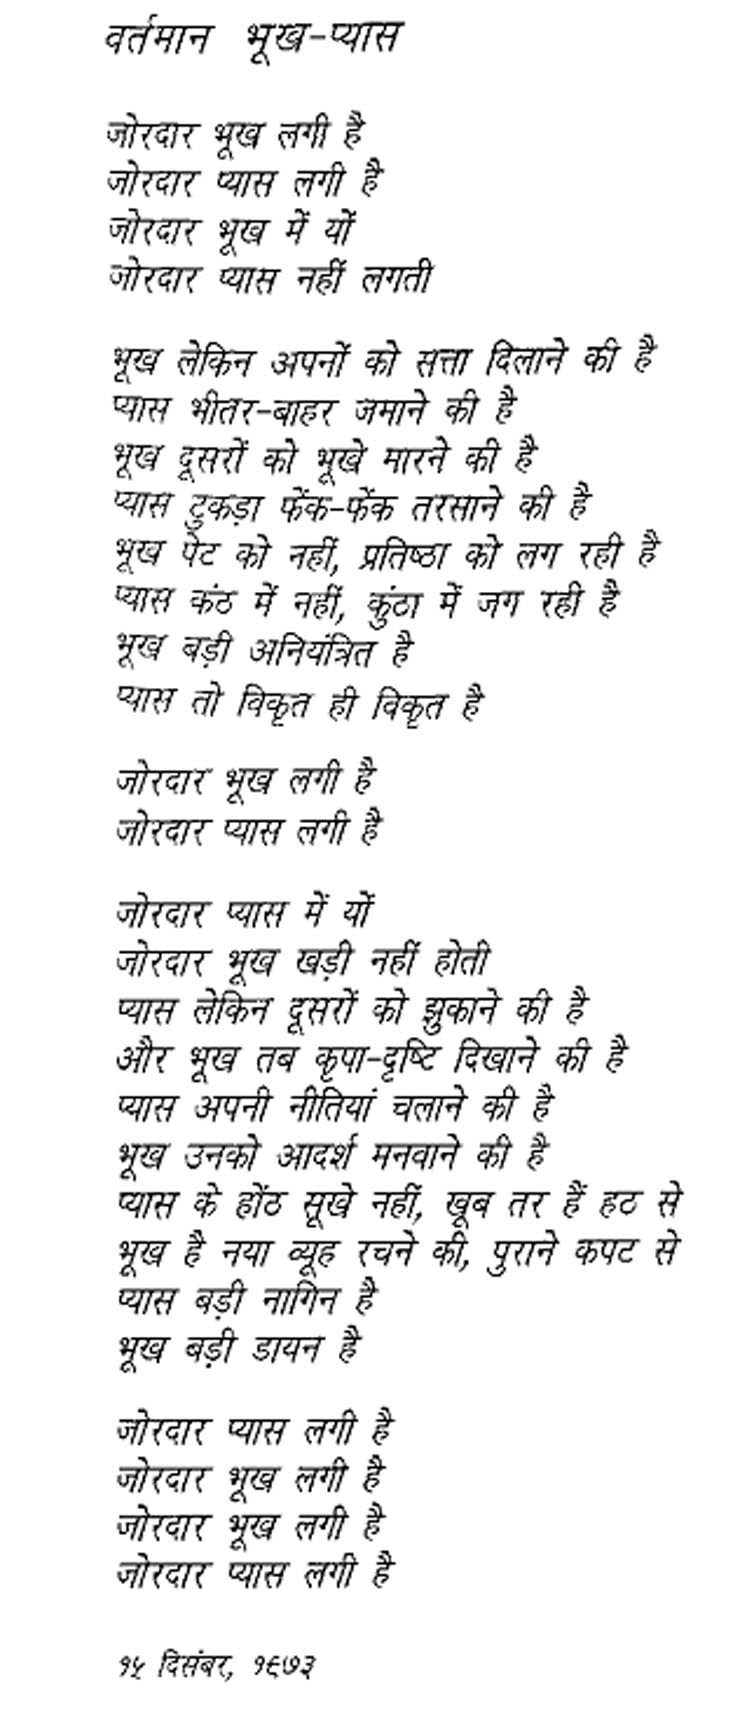 वर्तमान भूख-प्यास
जोरदार भूख लगी है
जोरदार प्यास लगी है
जोरदार भूख में यों
जोरदार प्यास नहीं लगती
भूख लेकिन अपनों को सत्ता दिलाने की है
प्यास भीतर-बाहर जमाने की है
भूख दूसरों को भूखे मारने की है
प्यास टुकड़ा फेंक-फेंक तरसाने की है
भूख पेट को नहीं, प्रतिष्ठा को लग रही है
प्यास कंठ में नहीं, कुंठा में जग रही है
भूख बड़ी अनियंत्रित है
प्यास तो विकृत ही विकृत है
जोरदार भूख लगी है
जोरदार प्यास लगी है
जोरदार प्यास में यों
जोरदार भूख खड़ी नहीं होती
प्यास लेकिन दूसरों को झुकाने की है
और भूख तब कृपा-दृष्टि दिखाने की है
प्यास अपनी नीतियां चलाने की है
भूख उनको आदर्श मनवाने की है
प्यास के होंठ सूखे नहीं, खूब तर हैं हठ से
भूख है नया व्यूह रचने की, पुराने कपट से
प्यास बड़ी नागिन है
भूख बड़ी डायन है
जोरदार प्यास लगी है
जोरदार भूख लगी है
जोरदार भूख लगी है
जोरदार प्यास लगी है
१५ दिसंबर, १९७३